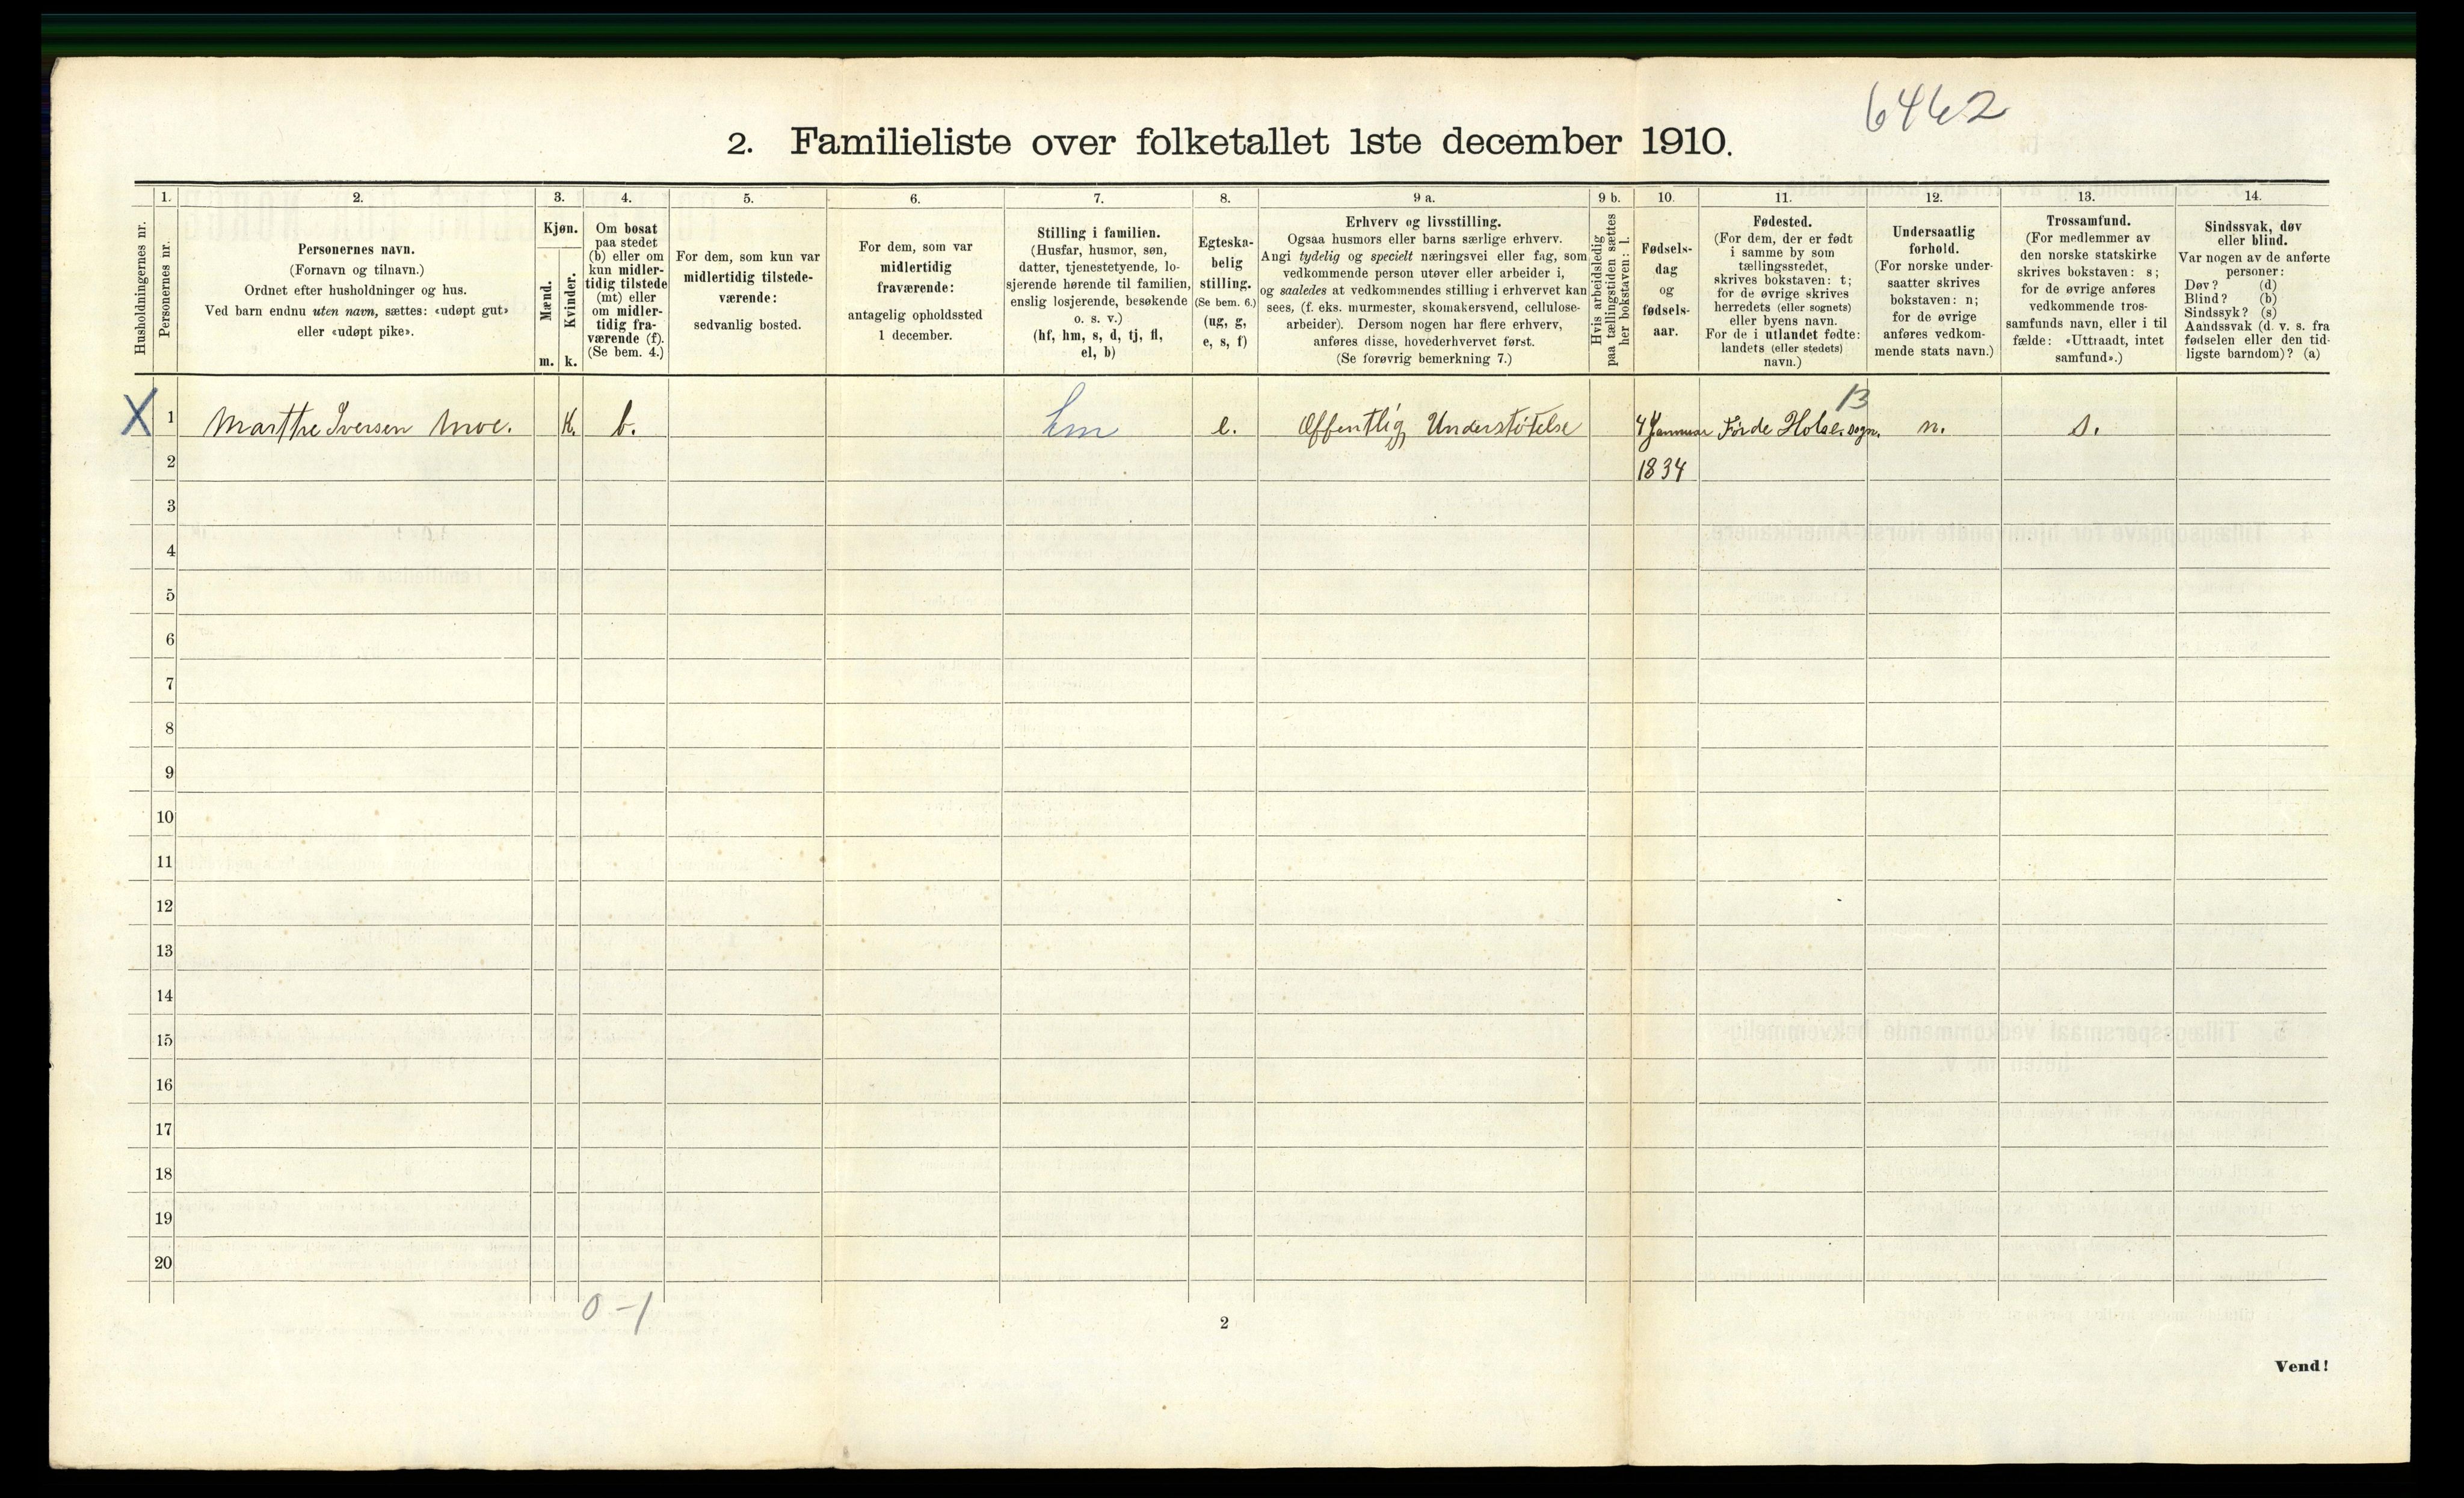 6462
2. Familieliste over folketallet 1ste december 1910.
Husholdningernes nr.
1.
Personernes nr.
2.
Personernes navn.
(Fornavn og tilnavn.)
Ordnet efter husholdninger og hus.
Ved barn endnu uten navn, sættes: «udøpt gut»
eller «udøpt pike».
3.
Kjøn.
Mænd.
Kvinder.
m. k.
4.
Om bosat
paa stedet
(b) eller om
kun midler-
tidig tilstede
(mt) eller
om midler-
tidig fra-
værende (f).
(Se bem. 4.)
5.
For dem, som kun var
midlertidig tilstede-
værende:
sedvanlig bosted.
6.
For dem, som var
midlertidig
fraværende:
antagelig opholdssted
1 december.
7.
Stilling i familien.
(Husfar, husmor, søn,
datter, tjenestetyende, lo-
sjerende hørende til familien,
enslig losjerende, besøkende
o. s. v.)
(hf, hm, s, d, tj, fl,
el, b)
8.
Egteska-
belig
stilling.
(Se bem. 6.)
(ug, g,
e, s, f)
9 a.
Erhverv og livsstilling.
Ogsaa husmors eller barns særlige erhverv.
Angi tydelig og specielt næringsvei eller fag, som
vedkommende person utøver eller arbeider i,
og saaledes at vedkommendes stilling i erhvervet kan
sees, (f. eks. murmester, skomakersvend, cellulose-
arbeider). Dersom nogen har flere erhverv,
anføres disse, hovederhvervet først.
(Se forøvrig bemerkning 7.)
9 b.
Hvis arbeidsledig
paa tællingstiden sættes
her bokstaven: l.
10.
Fødsels-
dag
og
fødsels-
aar.
11.
Fødested.
(For dem, der er født
i samme by som
tællingsstedet,
skrives bokstaven: t;
for de øvrige skrives
herredets (eller sognets)
eller byens navn.
For de i utlandet fødte:
landets (eller stedets)
navn.)
12.
Undersaatlig
forhold.
(For norske under-
saatter skrives
bokstaven: n;
for de øvrige
anføres vedkom-
mende stats navn.)
13.
Trossamfund.
(For medlemmer av
den norske statskirke
skrives bokstaven: s;
for de øvrige anføres
vedkommende tros-
samfunds navn, eller i til
fælde: «Uttraadt, intet
samfund».)
14.
Sindssvak, døv
eller blind.
Var nogen av de anførte
personer:
Døv? (d)
Blind? (b)
Sindssyk? (s)
Aandssvak (d. v. s. fra
fødselen eller den tid-
ligste barndom)? (a)
13
X 1 Marthe Iversen Moe. K. b. hm e. Offentlig Understøtelse 4 Januar Førde Holse.sogn. n. s.
2 1834
3
4
5
6
7
8
9
10
11
12
13
14
15
16
17
18
19
20
0-1
2
Vend!